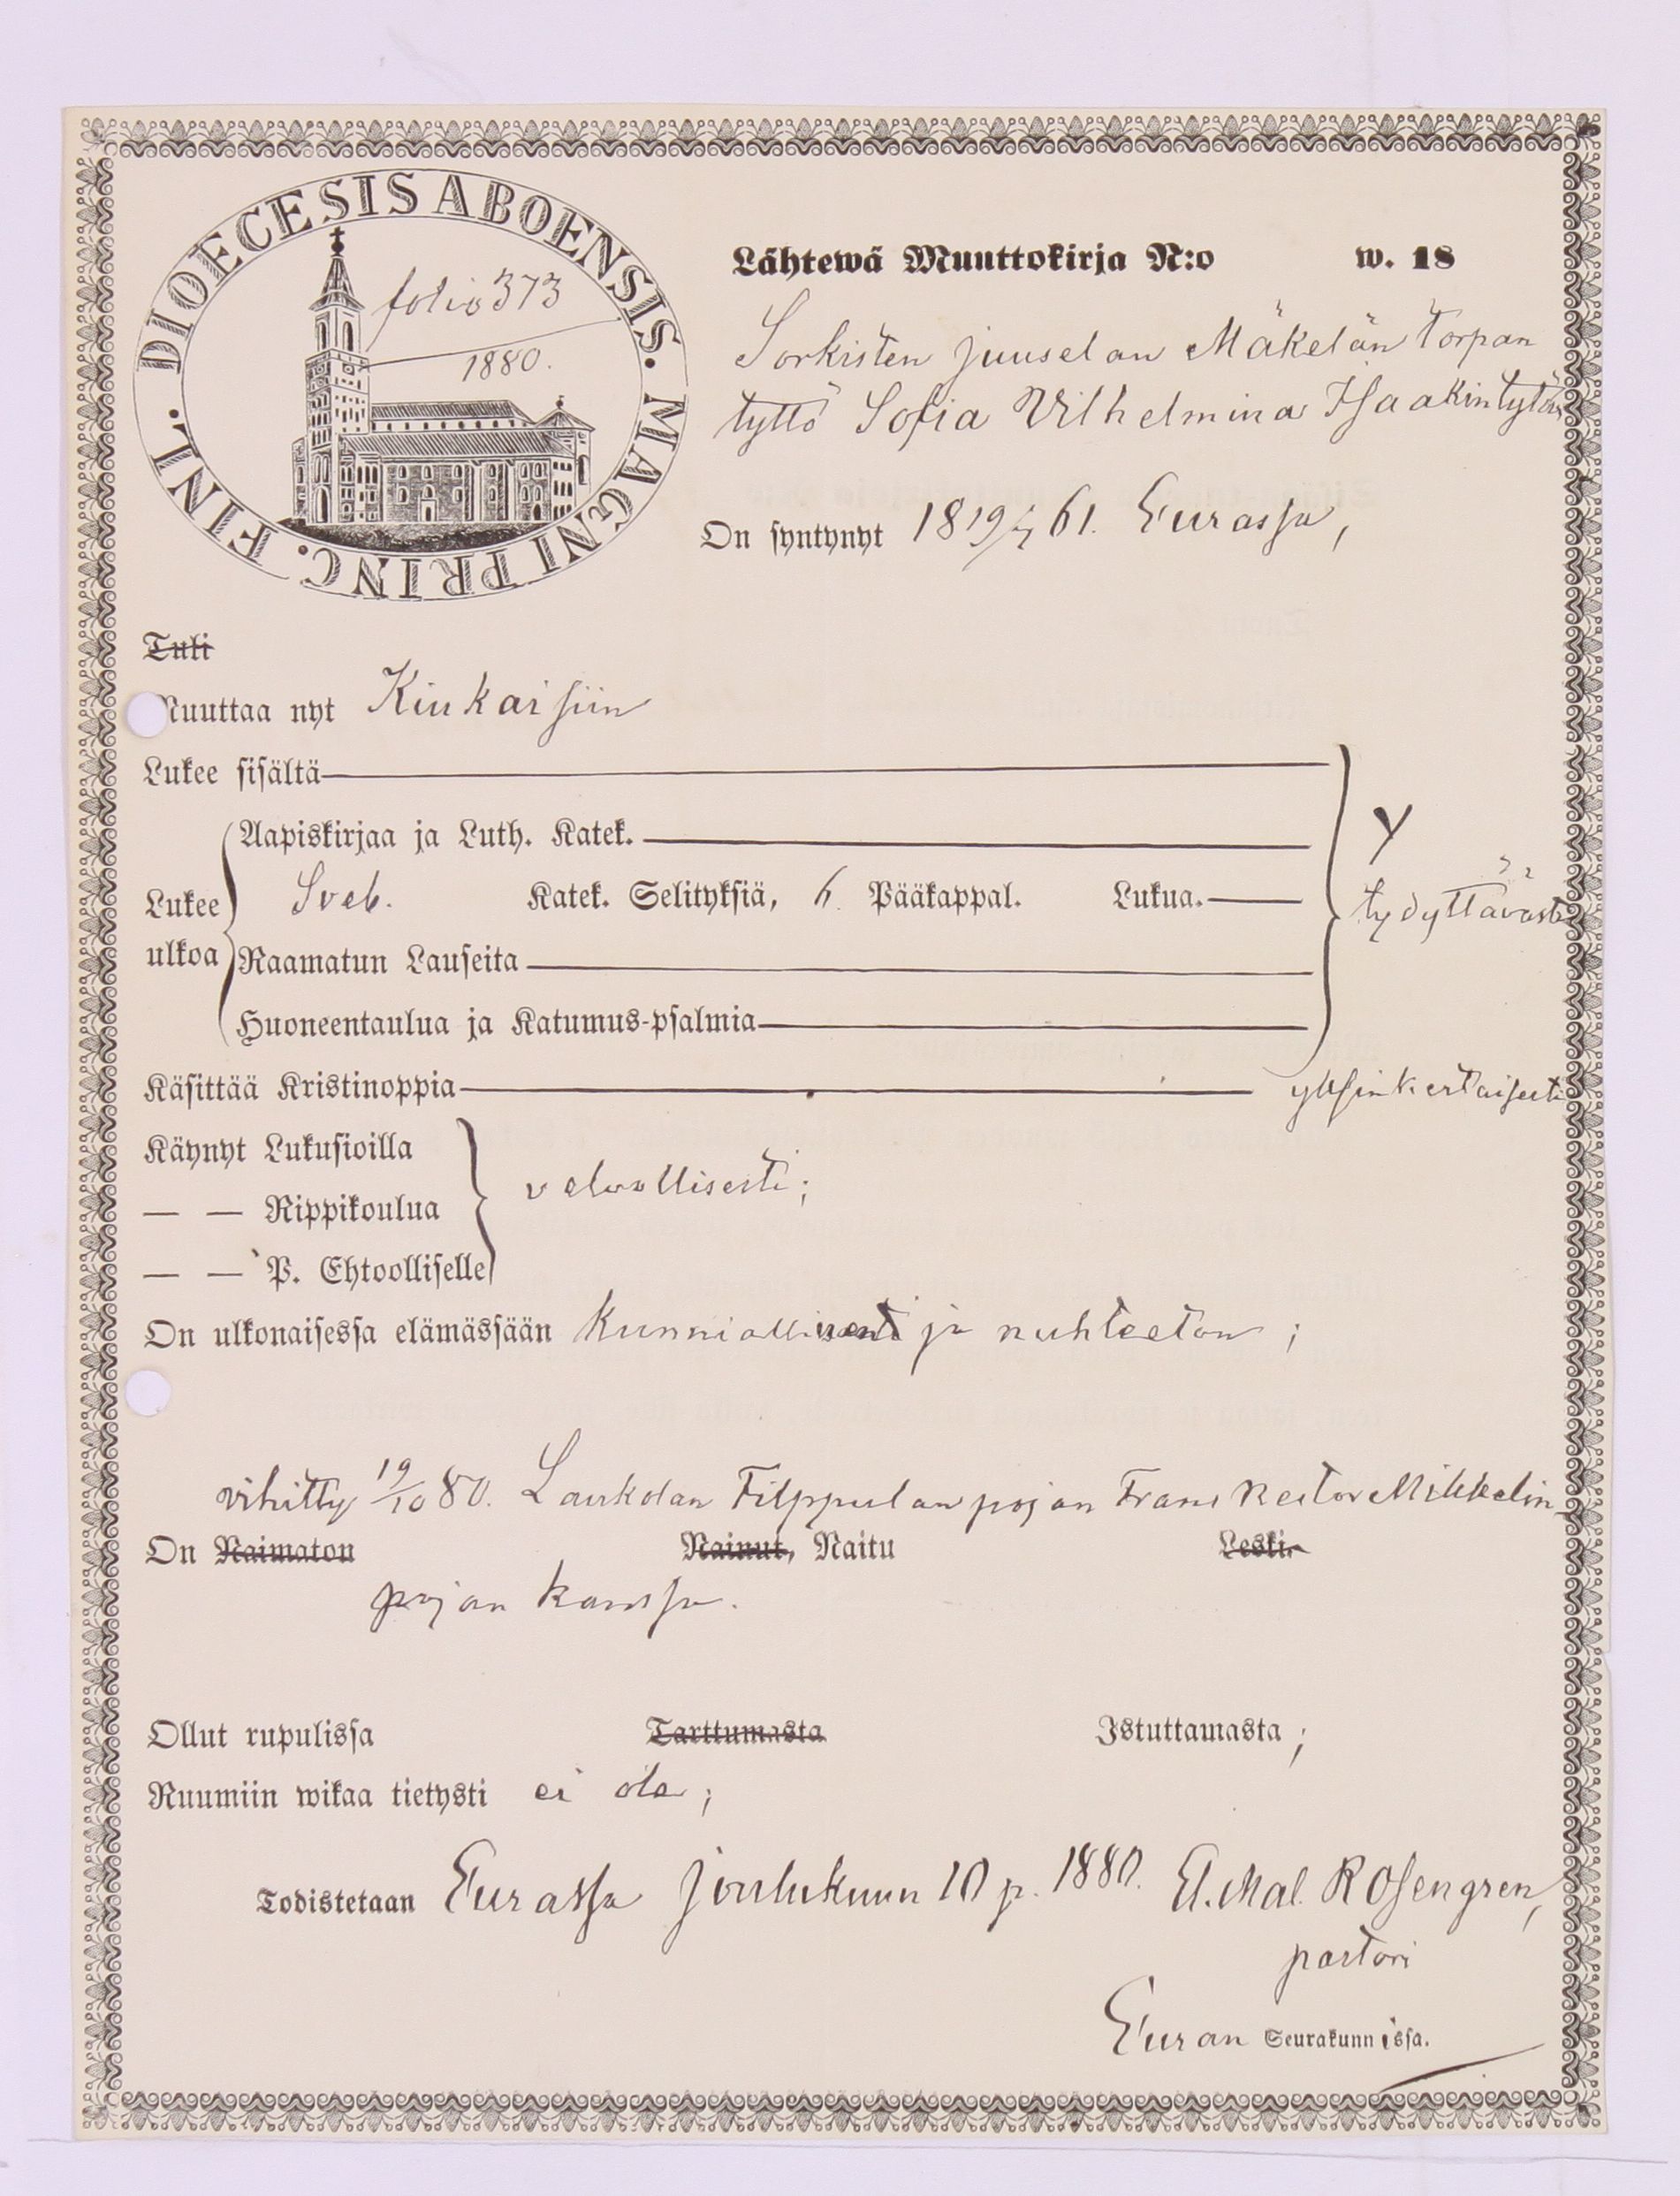 DIOECESIS ABOENSIS. MAGNI PRINC. FINL.
folio 373
1880.
Lähtewä Muuttokirja N:o w. 18
Sorkisten Juuselan Mäkelän torpan
tyttö Sofia Vilhelmina Isaakintytär
On syntynyt 18 19/7 61. Eurassa,
Tuli
Muuttaa nyt Kiukaisiin
Lukee sisältä
Aapiskirjaa ja Luth. Katek.
Lukee ulkoa
Sveb. Katek. Selityksiä, 6 Pääkappal. Lukua.
Raamatun Lauseita
Huoneentaulua ja Katumus-psalmia
tydyttävästi
Käsittää Kristinoppia yksinkertaisesti
Käynyt Lukusioilla
— — Rippikoulua velvollisesti;
— — P. Ehtoolliselle
On ulkonaisessa elämässään Kunniallinen ja nuhteeton;
vihitty 19/10 80. Laukolan Filppulan pojan Frans Nestor Mikkelin-
On Naimaton Nainut, Naitu Leski.
pojan kanssa.
Ollut rupulissa Tarttumasta Istuttamasta;
Ruumiin wikaa tietysti ei ole;
Todistetaan Eurassa Joulukuun 10 p. 1880. El. Mal. Rosengren,
pastori
Euran Seurakunnissa.